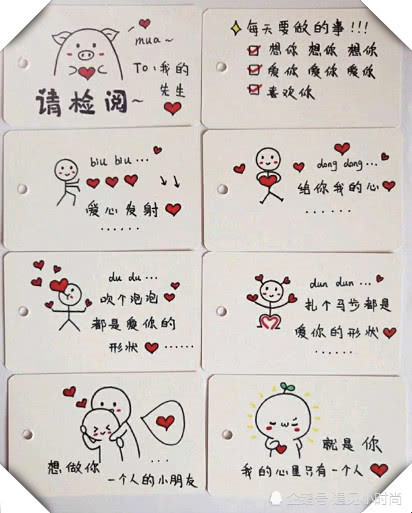 mua~
To:我的
先生
请检阅~
每天要做的事!!!
想你 想你 想你
爱你 爱你 爱你
喜欢你
biu biu...
爱心发射
......
dong dong...
给你我的心
......
du du...
吹个泡泡
都是爱你的
形状......
dun dun...
扎个马步都是
爱你的形状
......
...
想做你
一个人的小朋友
就是你
我的心里只有一个人
企鹅号 遇见小时尚